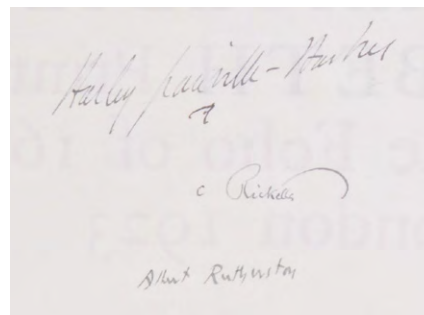 Harley Granville-Barker
C Ricketts
Albert Rutherston